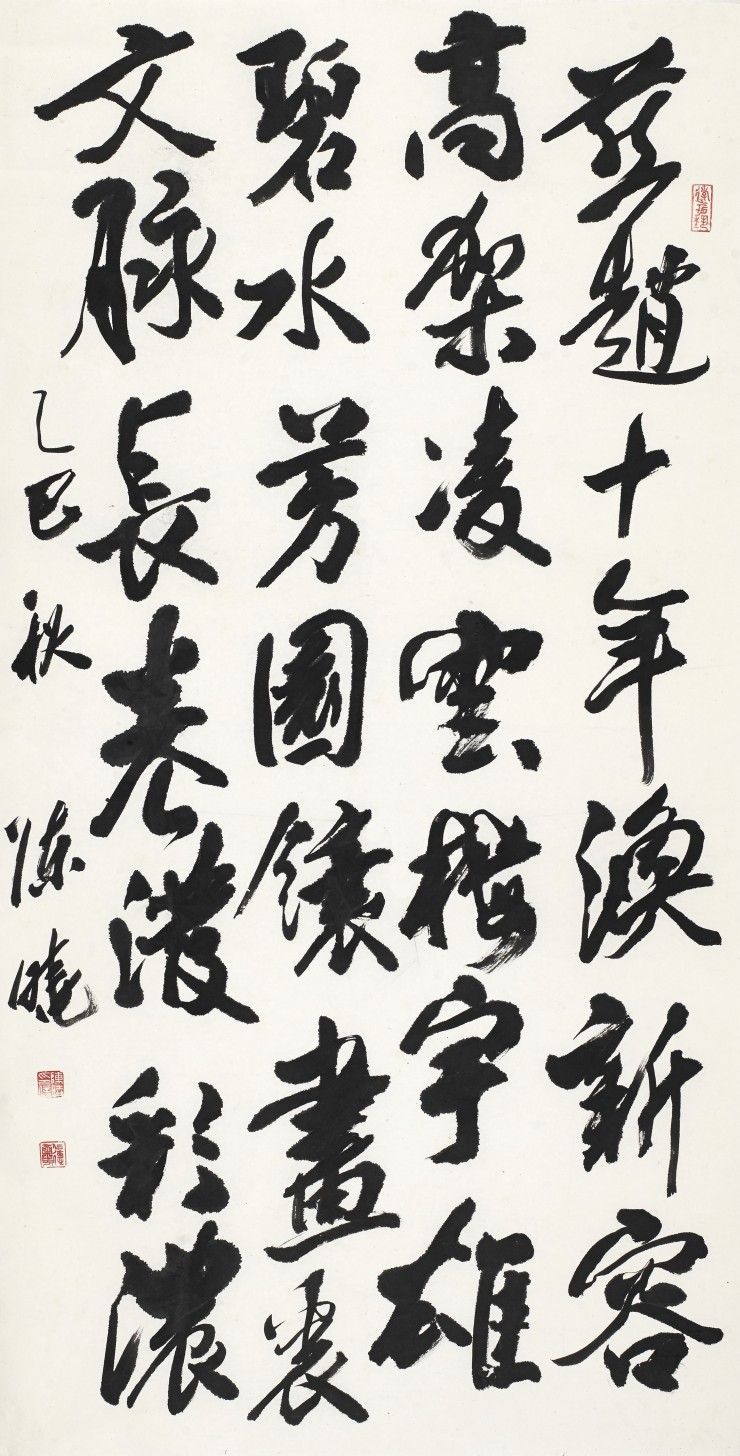 燕趙十年渙新容
高架凌雲樓宇雄
碧水芳園鑲畫裏
文脉長卷潑彩濃
乙巳秋 陳曉